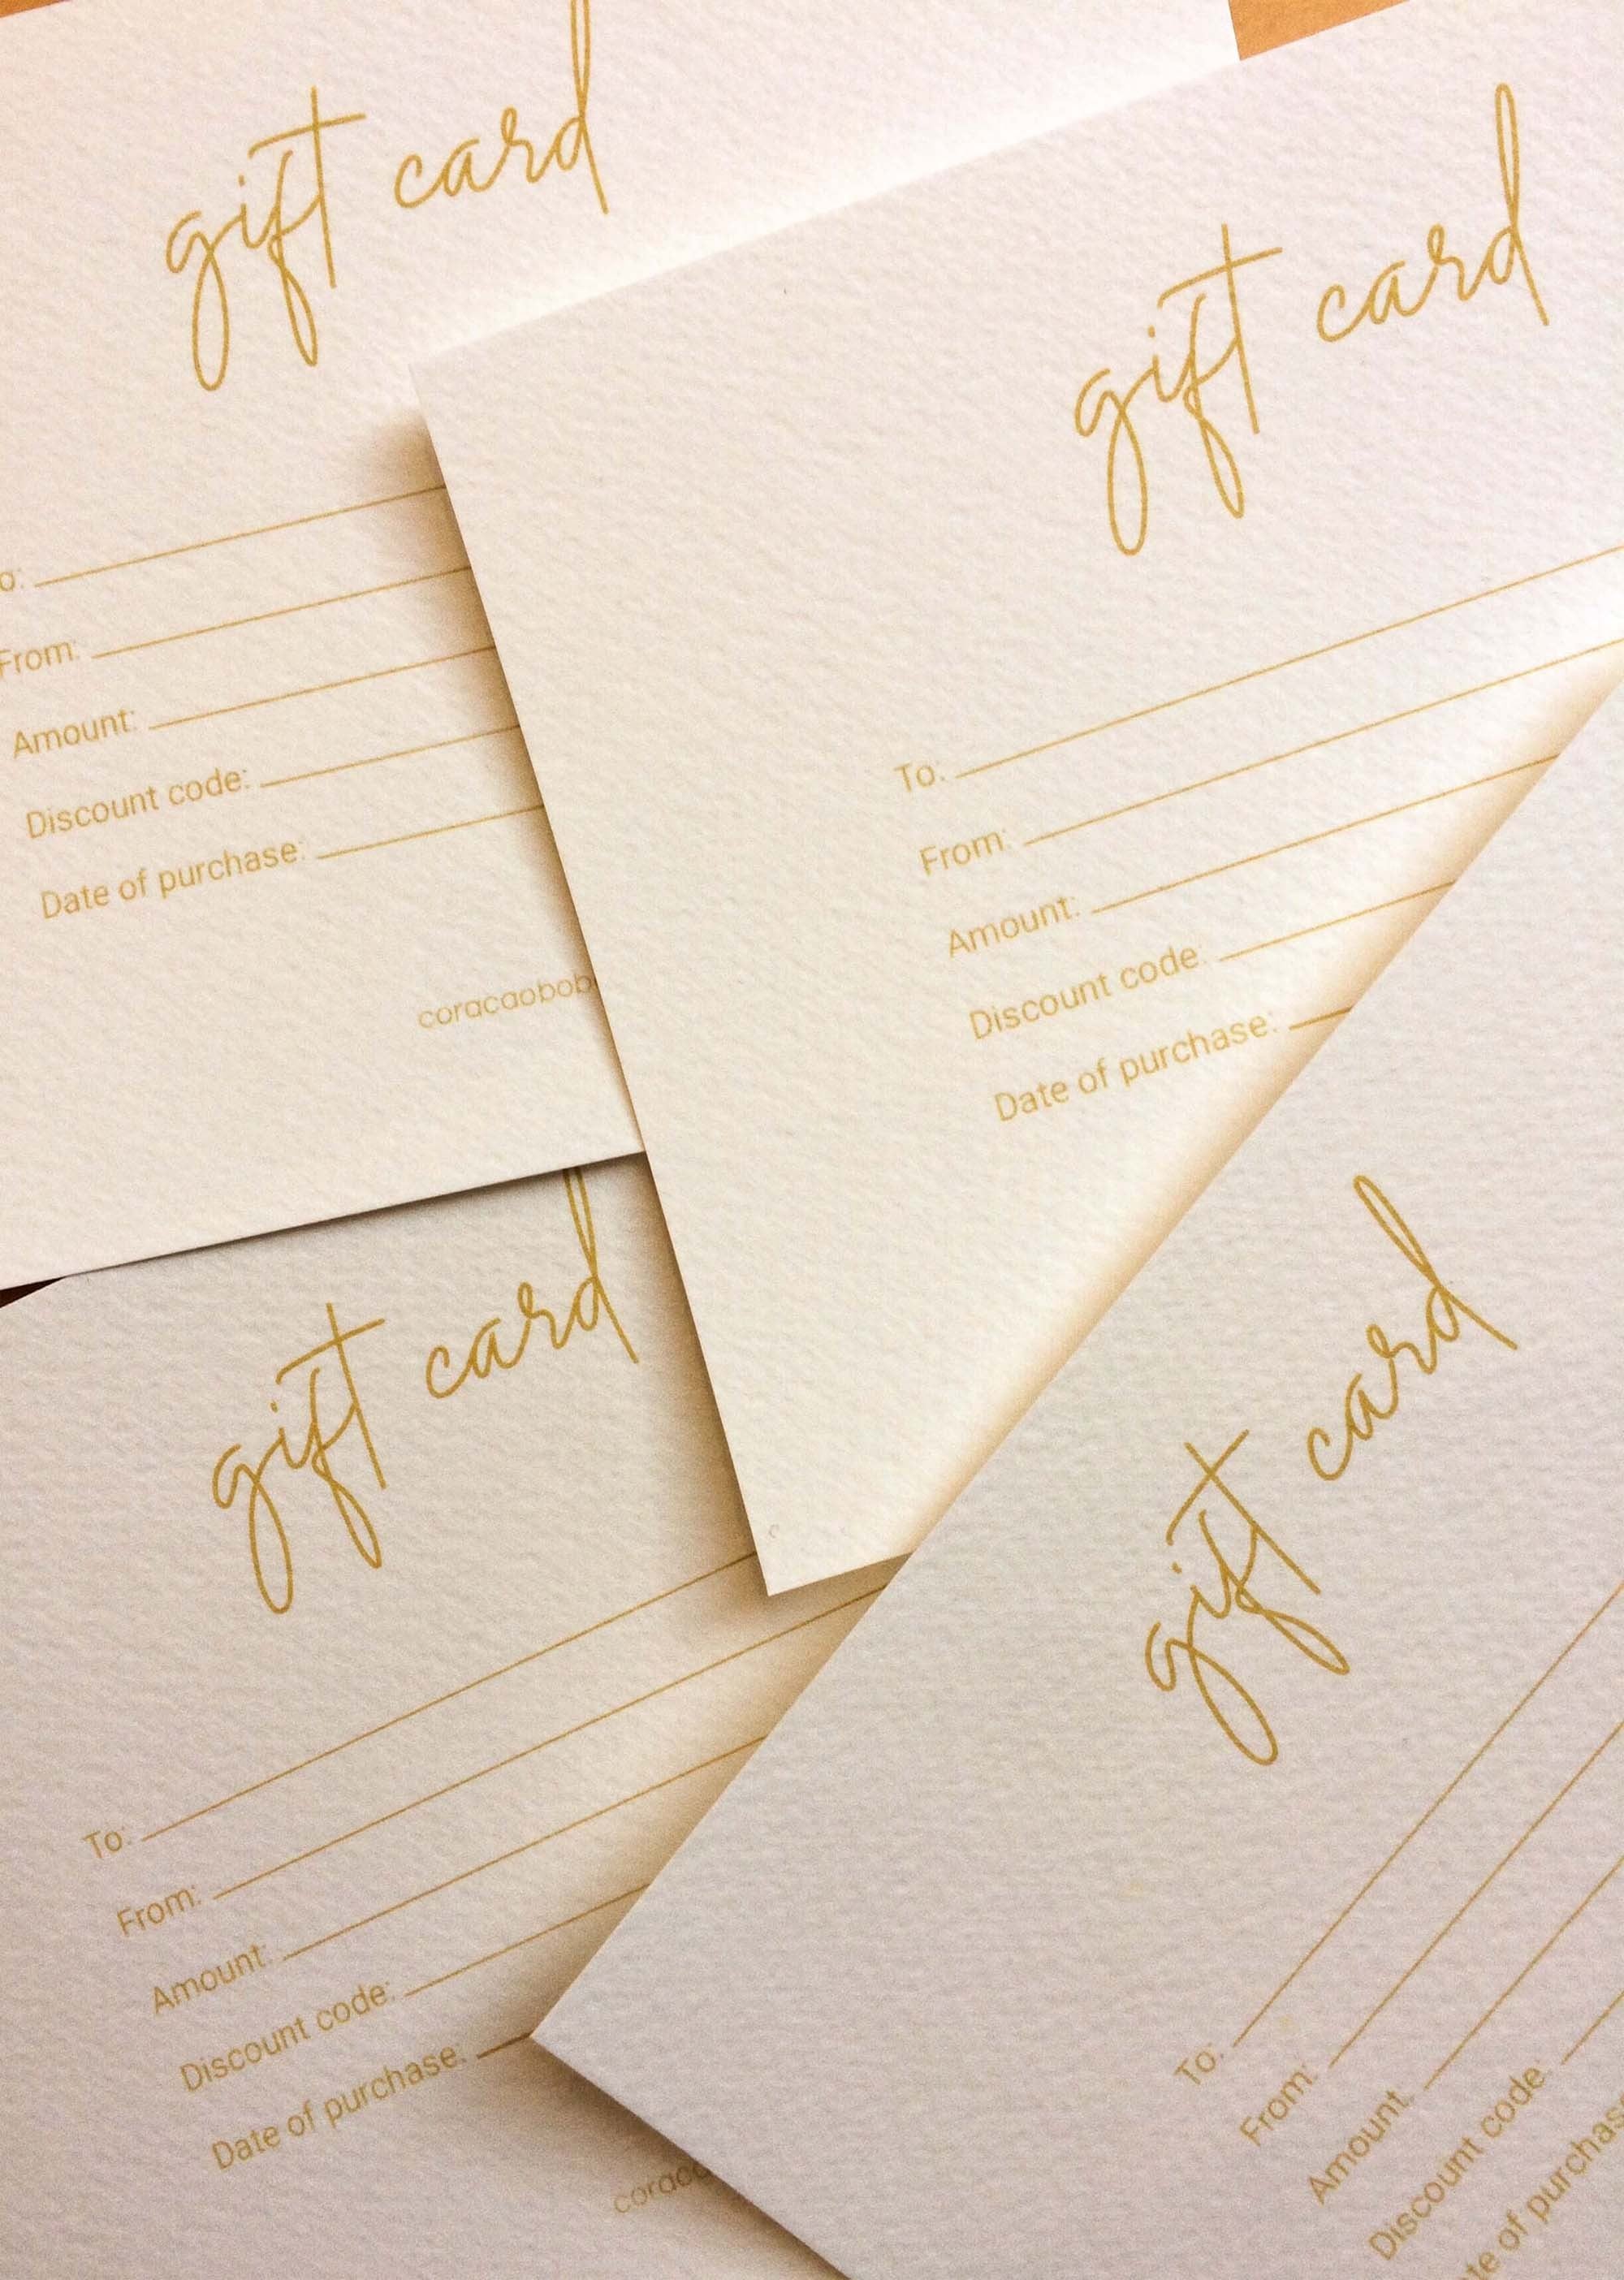 gift card
From:
Amount:
Discount code:
Date of purchase:
gift card
To:
From:
Amount:
Discount code:
Date of purchase:
gift card
To:
From:
Amount:
Discount code:
Date of purchase:
gift card
To:
From:
Amount:
Discount code:
of